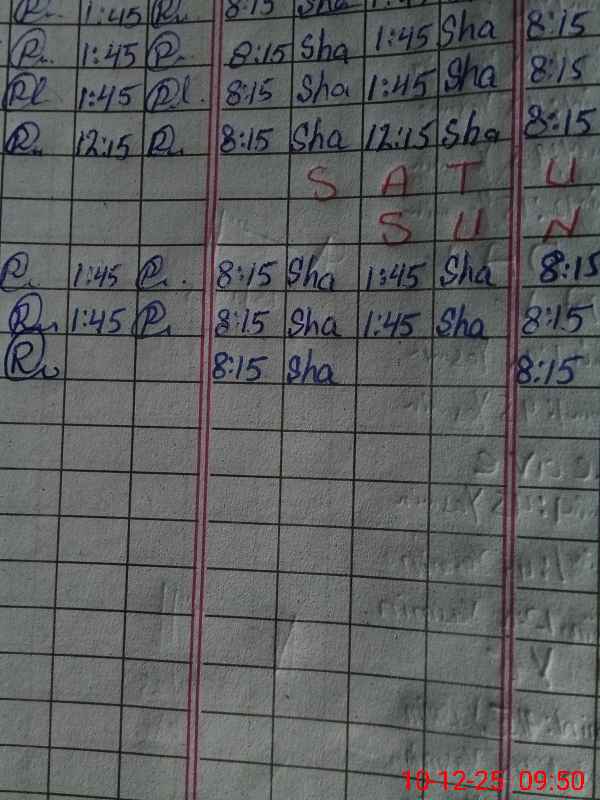 1:45 8:15 Sha
R. 1:45 R. 8:15 Sha 1:45 Sha 8:15
Rl 1:45 Rl. 8:15 Sha 1:45 Sha 8:15
R. 12:15 R. 8:15 Sha 12:15 Sha 8:15
S A T U
S U N
R. 1:45 R. 8:15 Sha 1:45 Sha 8:15
R. 1:45 R. 8:15 Sha 1:45 Sha 8:15
R. 8:15 Sha 8:15
10-12-25 09:50